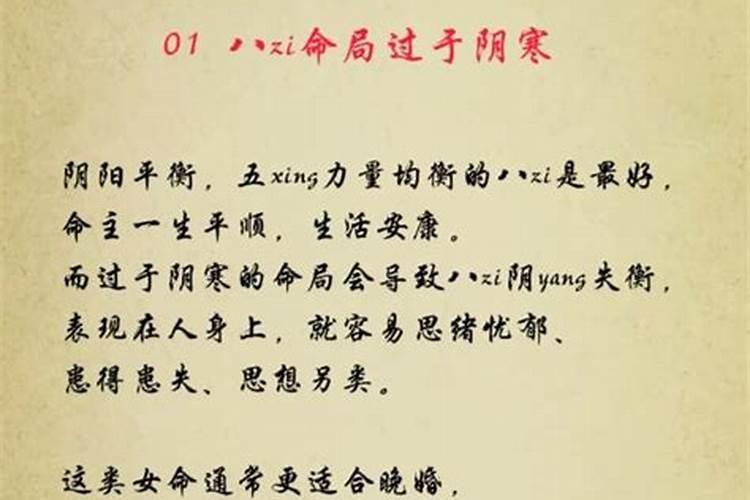 01 八zi命局过于阴寒
阴阳平衡，五xing力量均衡的八zi是最好，
命主一生平顺，生活安康。
而过于阴寒的命局会导致八zi阴yang失衡，
表现在人身上，就容易思绪忧郁、
患得患失、思想另类。
这类女命通常更适合晚婚，